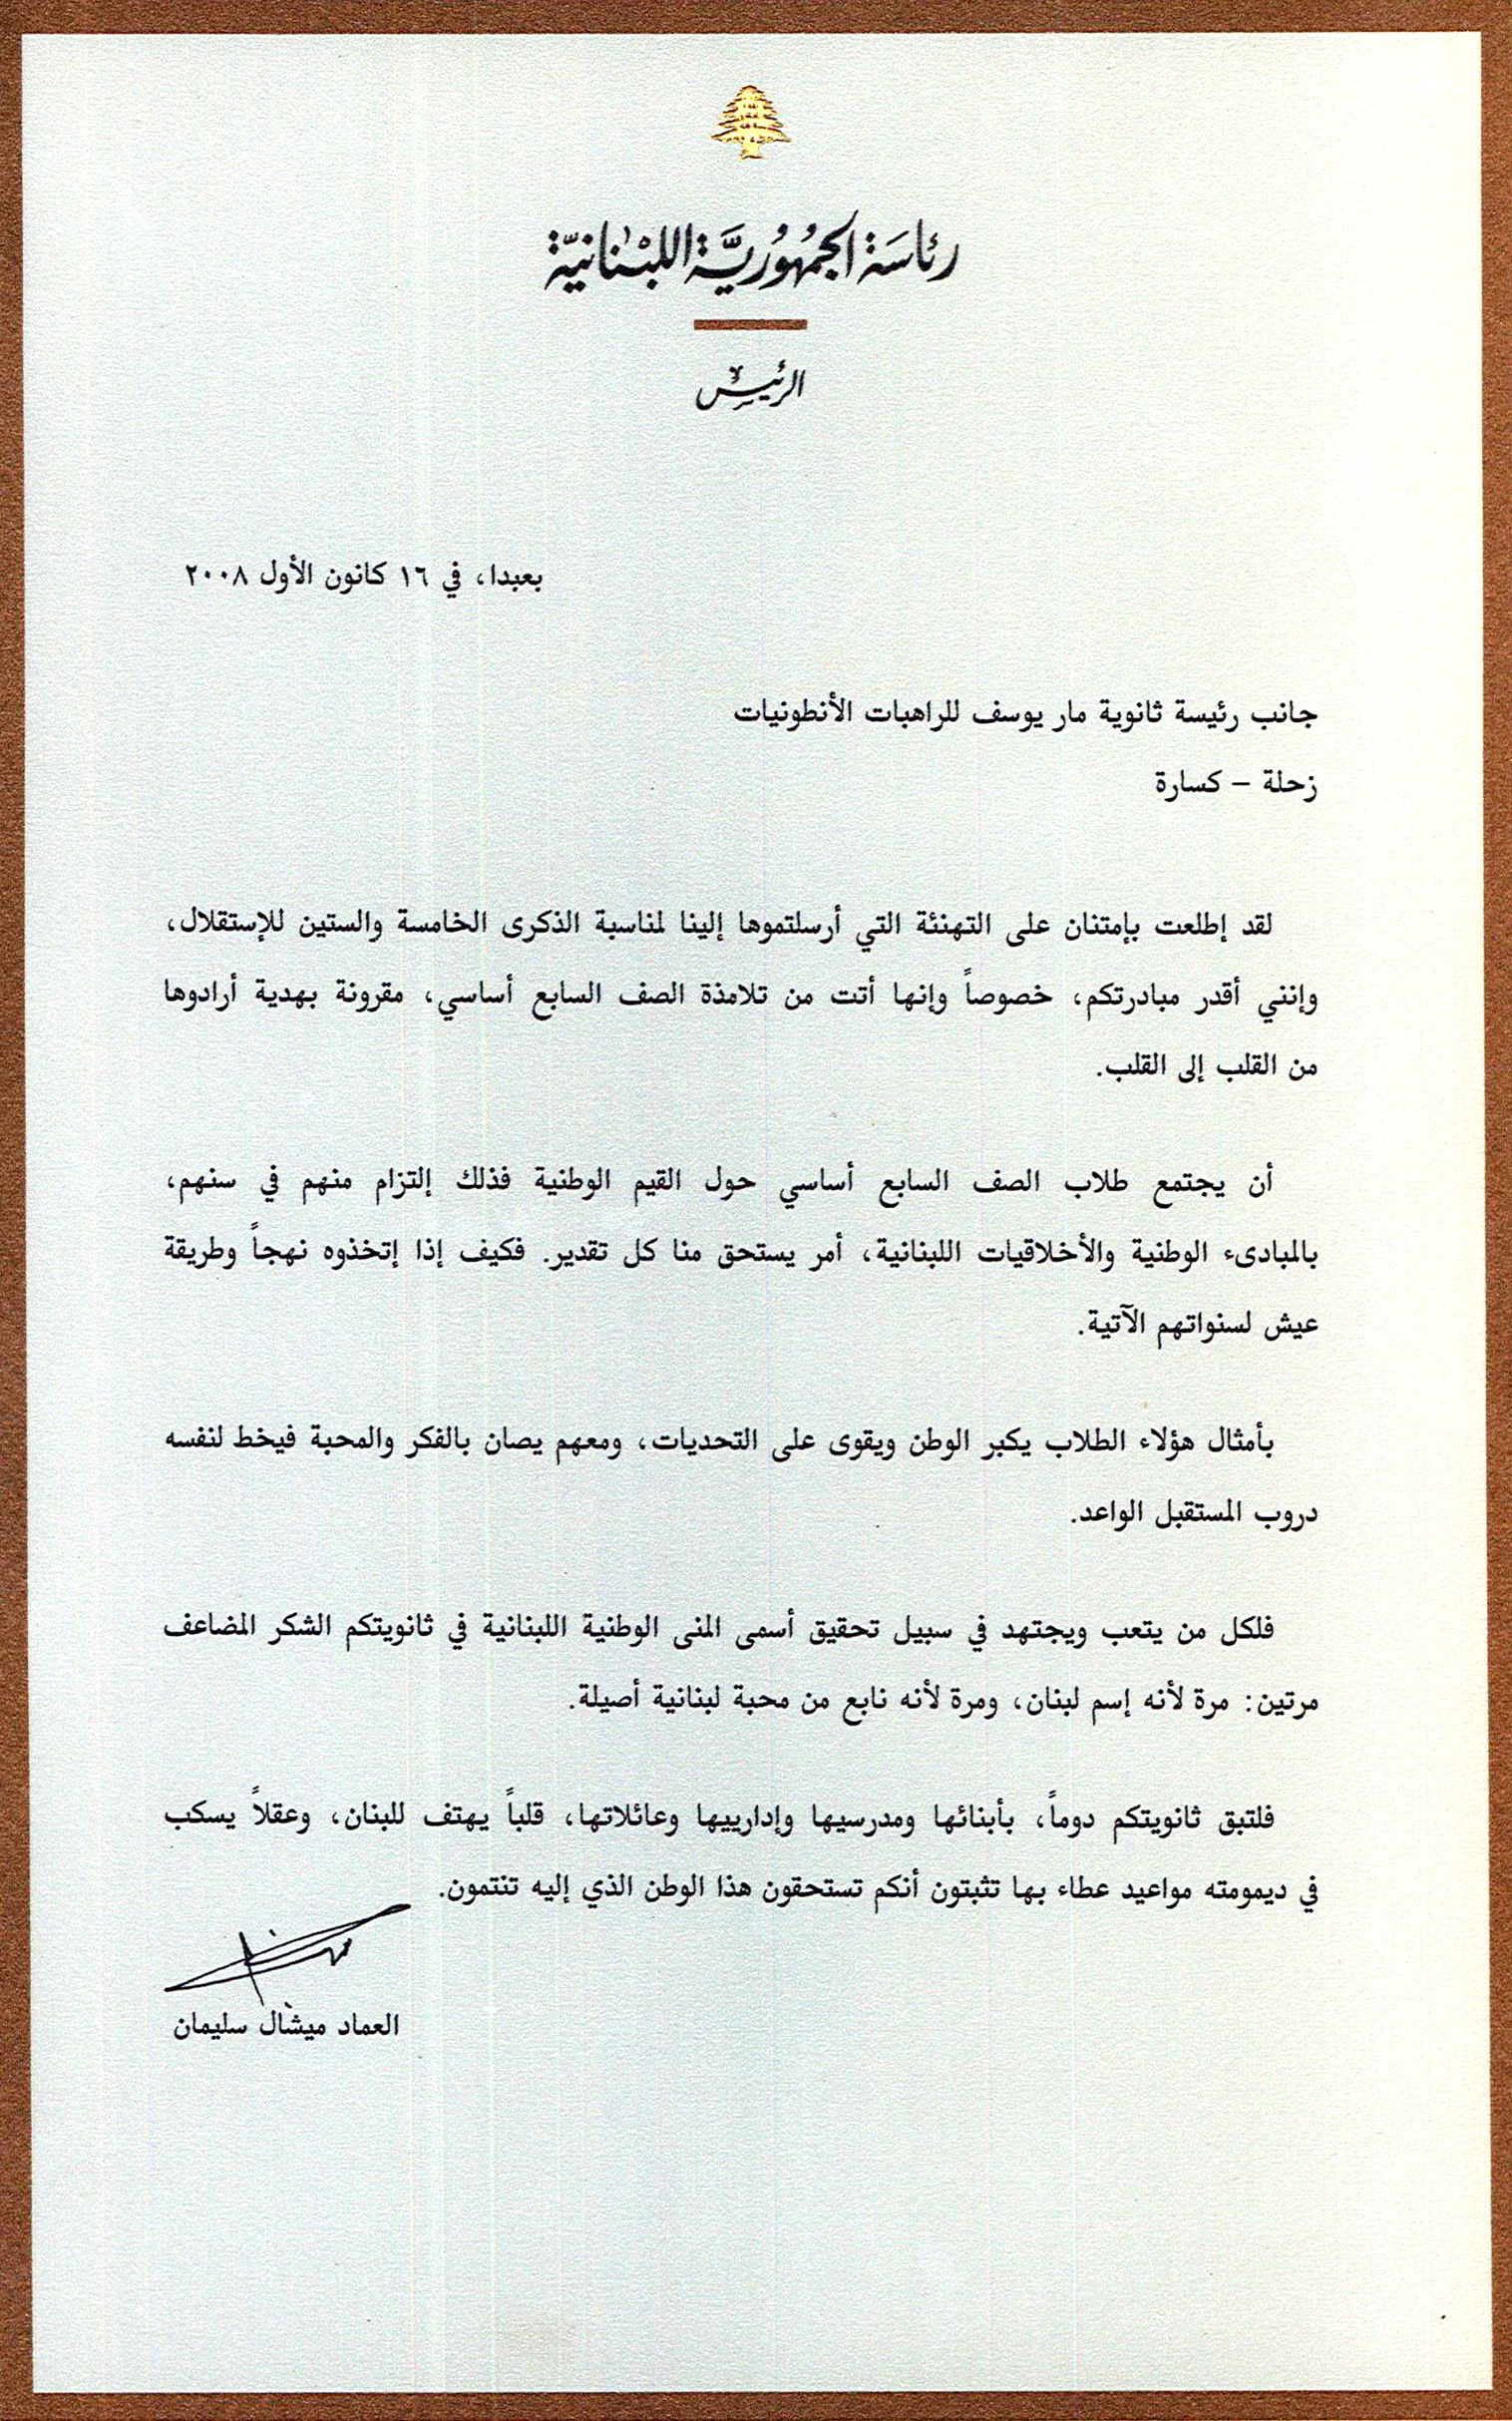 رئاسَة الجمُهُوريَّة اللبْنانيّة
الرئيس
بعبدا، في ١٦ كانون الأول ٢٠٠٨
جانب رئيسة ثانوية مار يوسف للراهبات الأنطونيات
زحلة – كسارة
لقد إطلعت بإمتنان على التهنئة التي أرسلتموها إلينا لمناسبة الذكرى الخامسة والستين للإستقلال،
وإنني أقدر مبادرتكم، خصوصاً وإنها أتت من تلامذة الصف السابع أساسي، مقرونة بهدية أرادوها
من القلب إلى القلب.
أن يجتمع طلاب الصف السابع أساسي حول القيم الوطنية فذلك إلتزام منهم في سنهم،
بالمبادىء الوطنية والأخلاقيات اللبنانية، أمر يستحق منا كل تقدير. فكيف إذا إتخذوه نهجاً وطريقة
عيش لسنواتهم الآتية.
بأمثال هؤلاء الطلاب يكبر الوطن ويقوى على التحديات، ومعهم يصان بالفكر والمحبة فيخط لنفسه
دروب المستقبل الواعد.
فلكل من يتعب ويجتهد في سبيل تحقيق أسمى المنى الوطنية اللبنانية في ثانويتكم الشكر المضاعف
مرتين: مرة لأنه إسم لبنان، ومرة لأنه نابع من محبة لبنانية أصيلة.
فلتبق ثانويتكم دوماً، بأبنائها ومدرسيها وإدارييها وعائلاتها، قلباً يهتف للبنان، وعقلاً يسكب
في ديمومته مواعيد عطاء بها تثبتون أنكم تستحقون هذا الوطن الذي إليه تنتمون.
العماد ميشال سليمان